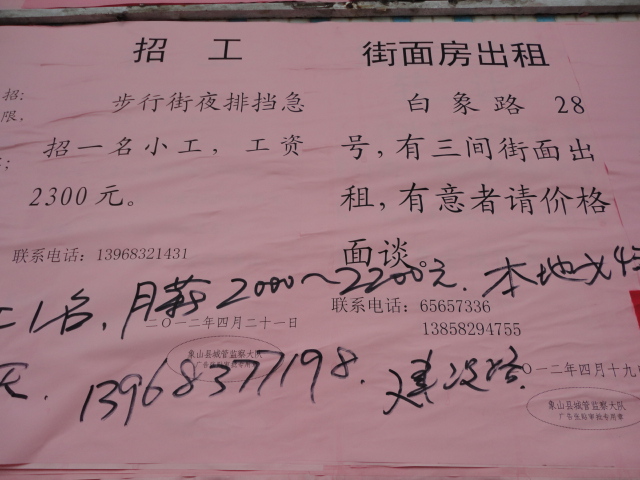 招 工
步行街夜排挡急
招一名小工，工资
2300元。
联系电话：13968321431
二〇一二年四月二十一日
象山县城管监察大队
广告张贴审批专用章
街面房出租
白象路 28
号，有三间街面出
租，有意者请价格
面谈。
联系电话：65657336
13858294755
一二年四月十九
象山县城管监察大队
广告张贴审批专用章
招：
限，
工1名，月薪2000～2200元．本地或
13968377198．建设路